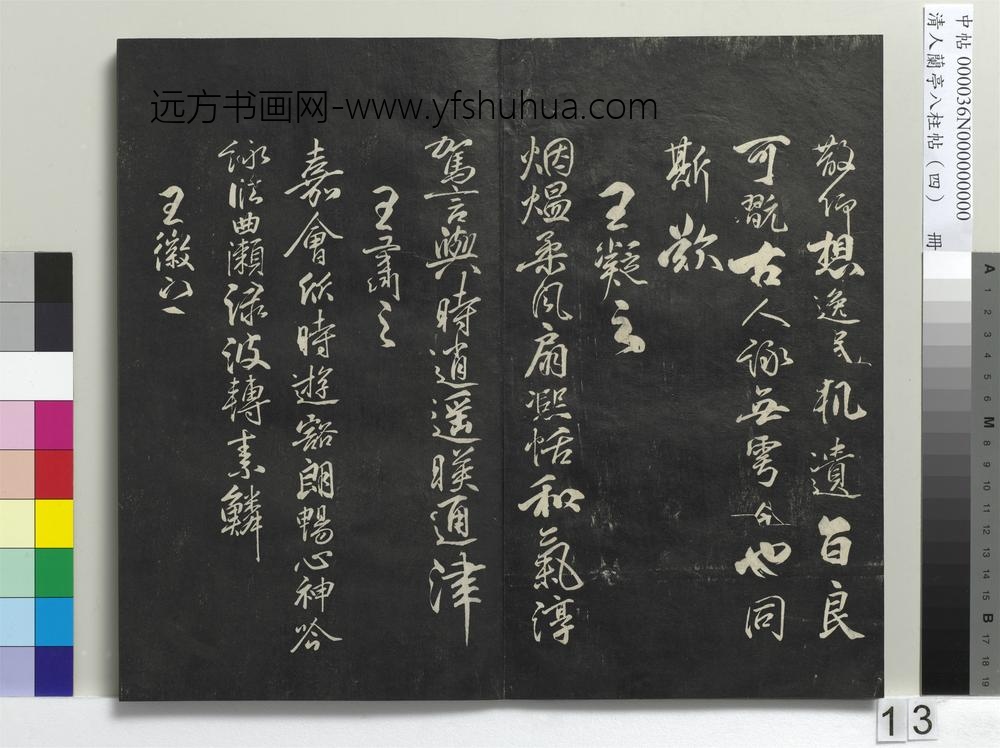 远方书画网-www.yfshuhua.com
中帖000036N000000000
清人蘭亭八柱帖（四） 冊
敬仰想逸民軌遺音良
可翫古人詠無雩今也同
斯歎
王凝之
烟熅柔風扇熙恬和氣淳
駕言興時遊逍遥暎通津
王肅之
嘉會欣時遊豁朗暢心神吟
詠曲瀨淥波轉素鱗
王徽之
A 1 2 3 4 5 6 M 8 9 10 11 12 13 14 15 B 17 18 19
13